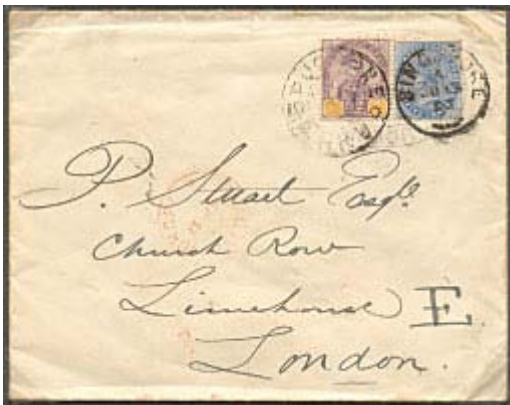 SINGAPORE
P. Stuart Esqre.
Church Row
Limehouse E.
London.